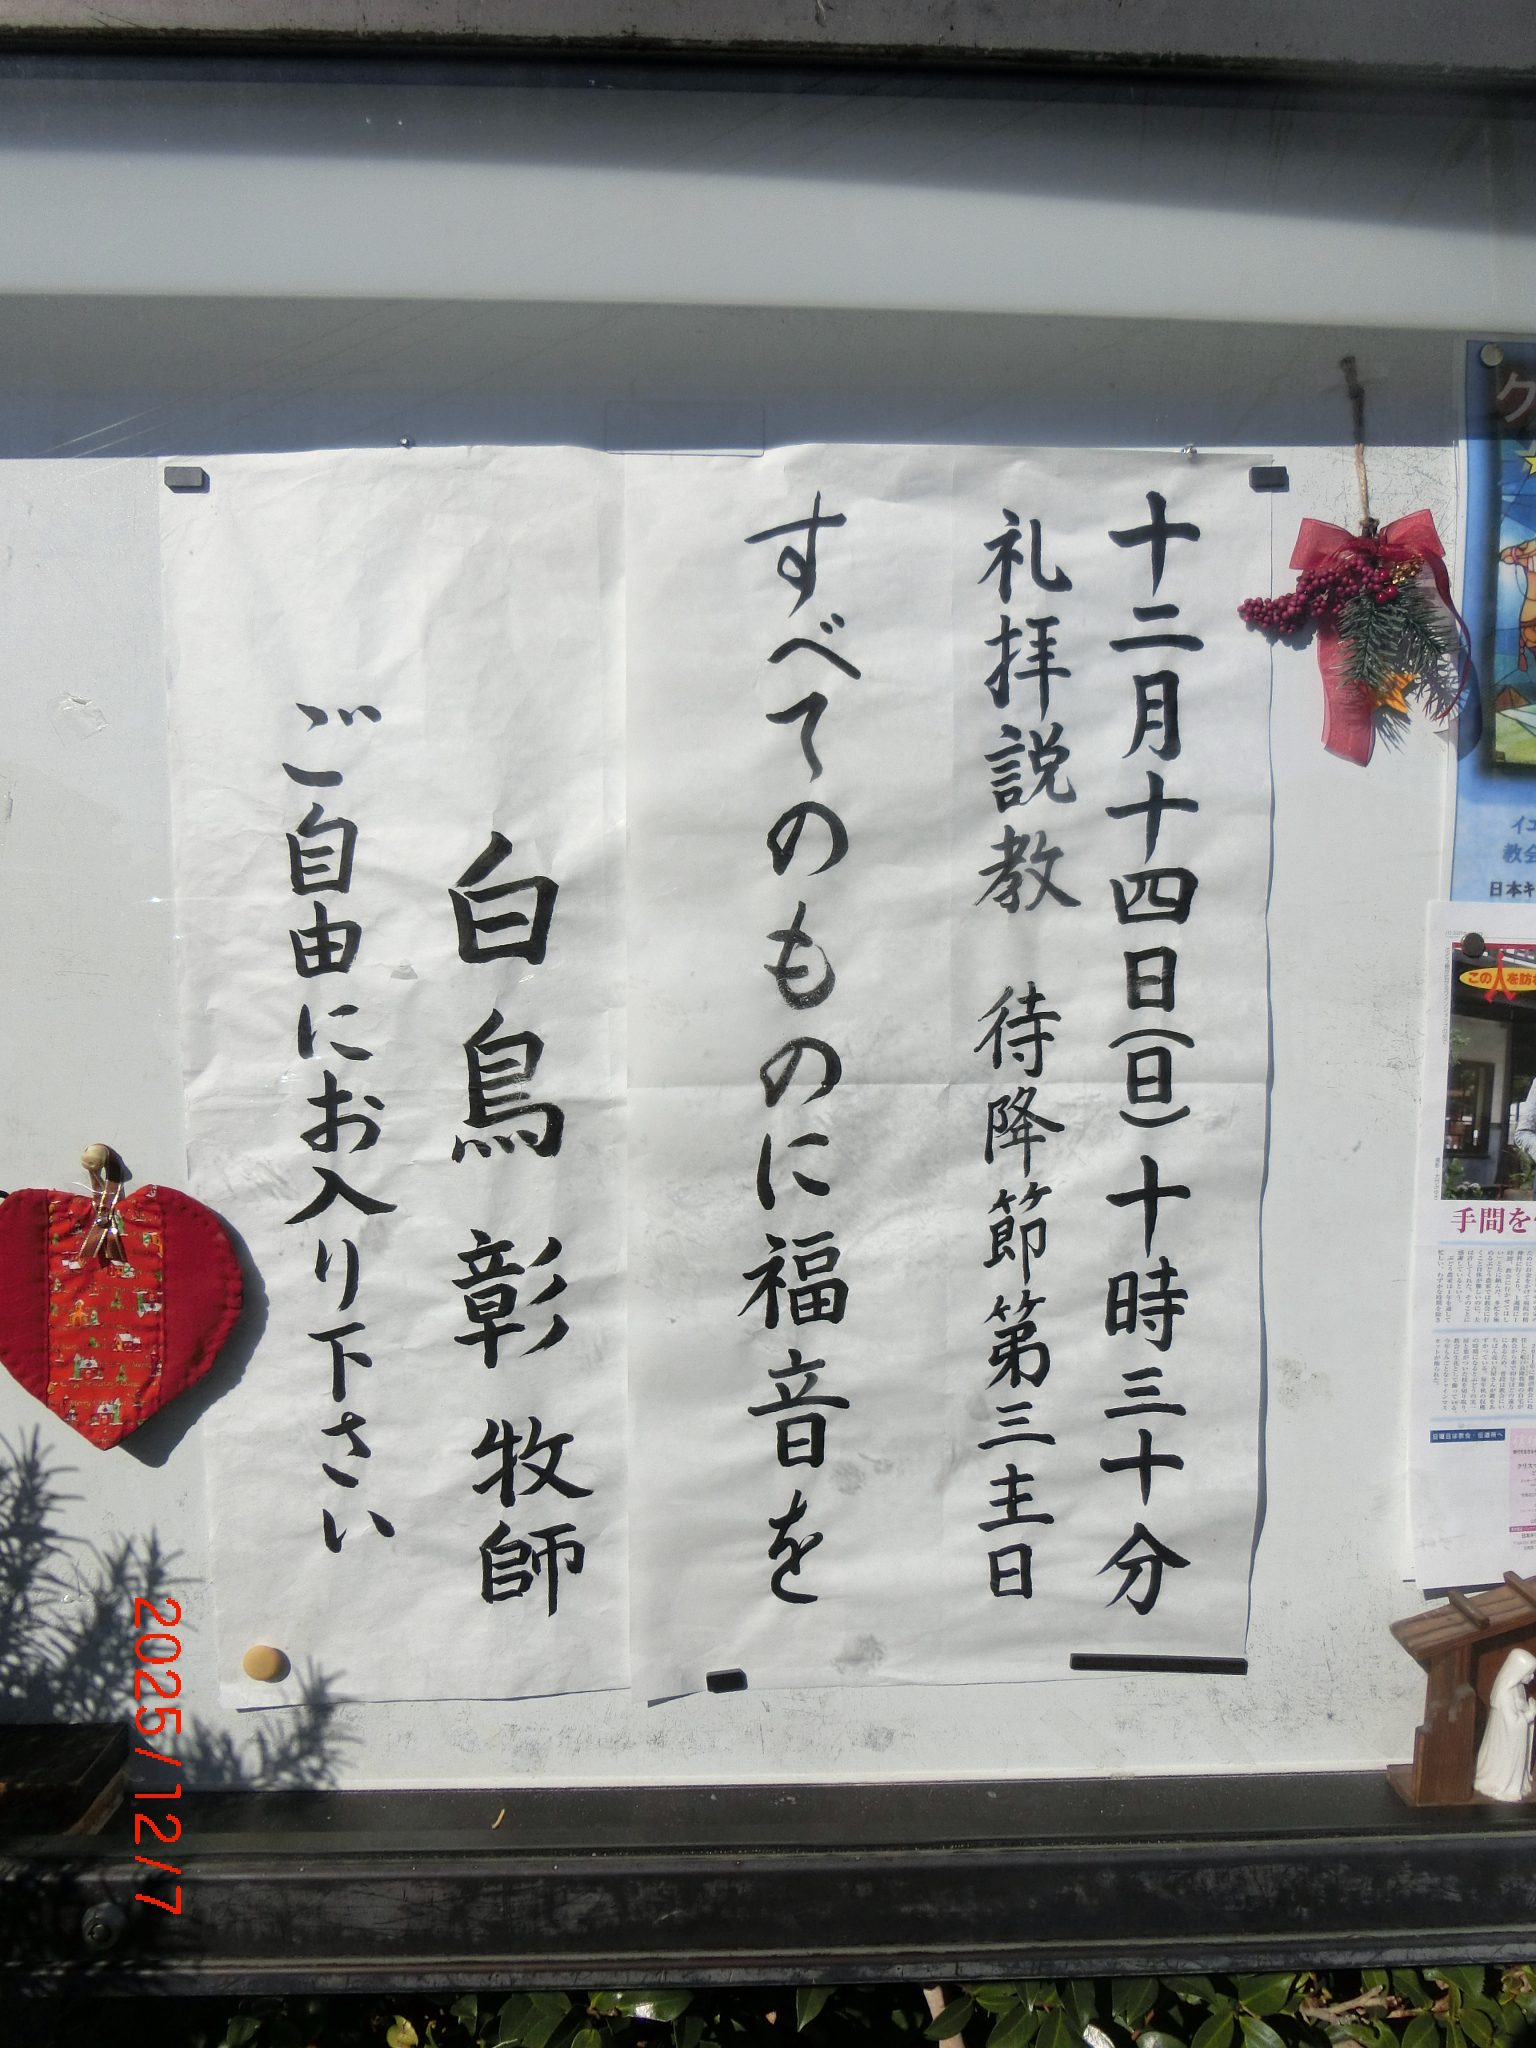 十二月十四日(日)十時三十分
礼拝説教　待降節第三主日
すべてのものに福音を
白鳥彰牧師
ご自由にお入り下さい
ク
イエ
教会
日本キ
この人を訪
手間を
2025/12/7